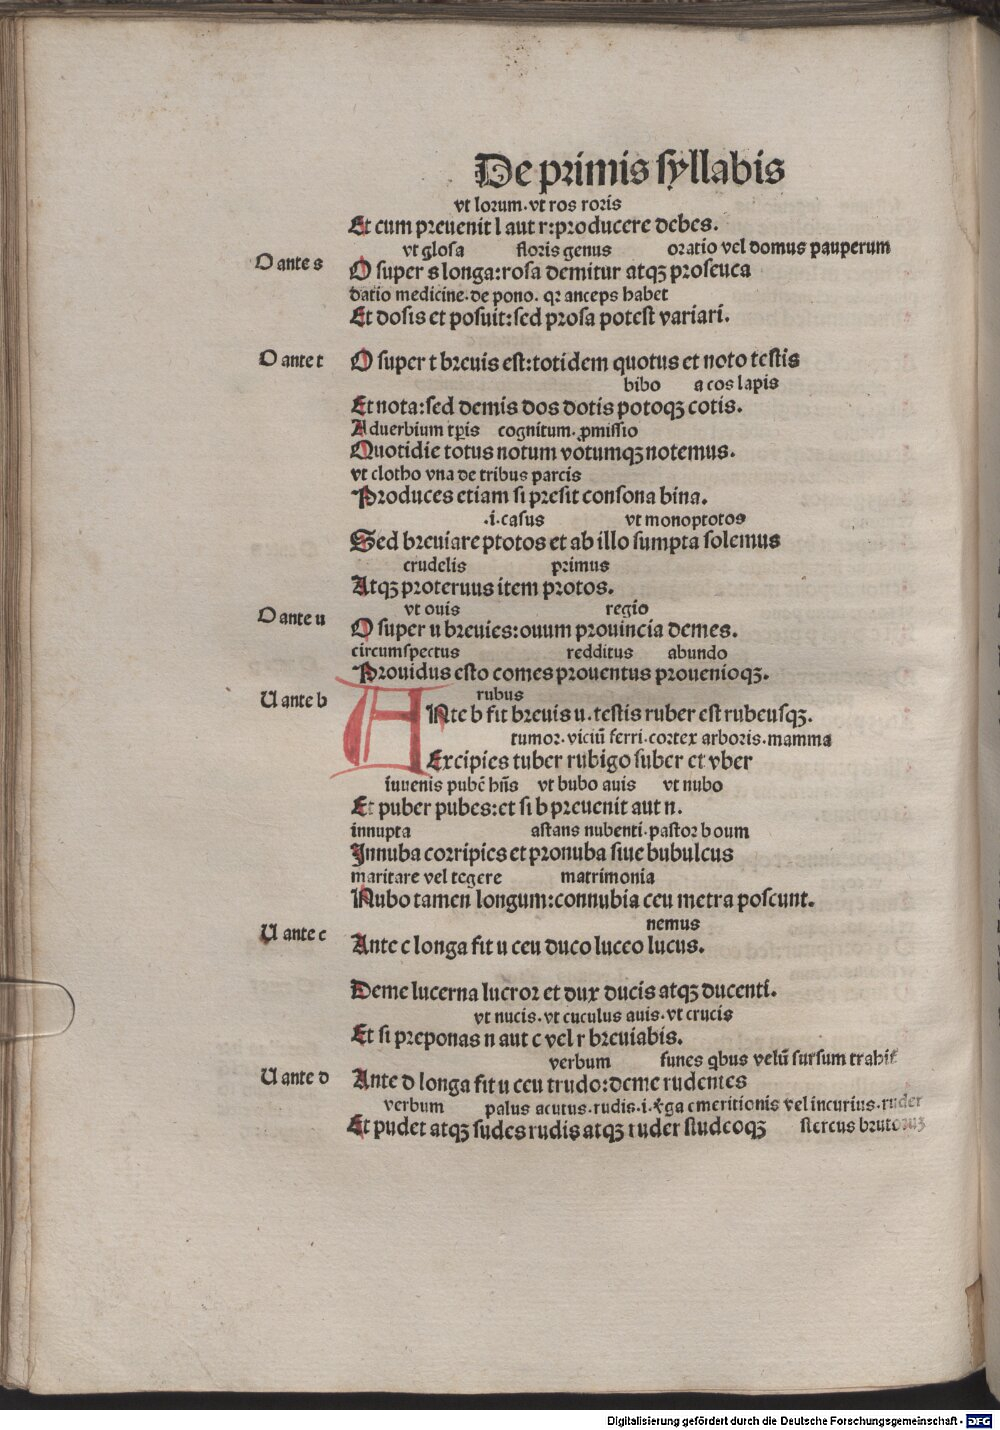 De primis syllabis
vt lorum. vt ros roris
Et cum preuenit l aut r: producere debes.
vt glosa floris genus oratio vel domus pauperum
O ante s
O super s longa: rosa demitur atqꝫ proseuca
datio medicine. de pono. qꝛ anceps habet
Et dosis et posuit: sed prosa potest variari.
O ante t
O super t breuis est: totidem quotus et noto testis
bibo a cos lapis
Et nota: sed demis dos dotis potoqꝫ cotis.
Aduerbium tp̄is cognitum. ꝓmissio
Quotidie totus notum votumqꝫ notemus.
vt clotho vna de tribus parcis
Produces etiam si presit consona bina.
.i. casus vt monoptotos
Sed breuiare ptotos et ab illo sumpta solemus
crudelis primus
Atqꝫ proteruus item protos.
vt ouis regio
O ante u
O super u breuies: ouum prouincia demes.
circumspectus redditus abundo
Prouidus esto comes prouentus prouenioqꝫ.
U ante b
rubus
ANte b fit breuis u. testis ruber est rubeusqꝫ.
tumor. viciū ferri. cortex arboris. mamma
Excipies tuber rubigo suber et vber
iuuenis pubē hn̄s vt bubo auis vt nubo
Et puber pubes: et si b preuenit aut n.
innupta astans nubenti. pastor boum
Innuba corripies et pronuba siue bubulcus
maritare vel tegere matrimonia
Nubo tamen longum: connubia ceu metra poscunt.
nemus
U ante c
Ante c longa fit u ceu duco luceo lucus.
Deme lucerna lucror et dux ducis atqꝫ ducenti.
vt nucis. vt cuculus auis. vt crucis
Et si preponas n aut c vel r breuiabis.
verbum funes qbus velū sursum trahit
U ante d
Ante d longa fit u ceu trudo: deme rudentes
verbum palus acutus. rudis. i. v̄ga emeritionis vel incurius. ruder
Et pudet atqꝫ sudes rudis atqꝫ ruder studeoqꝫ stercus brutoꝝ
Digitalisierung gefördert durch die Deutsche Forschungsgemeinschaft - DFG